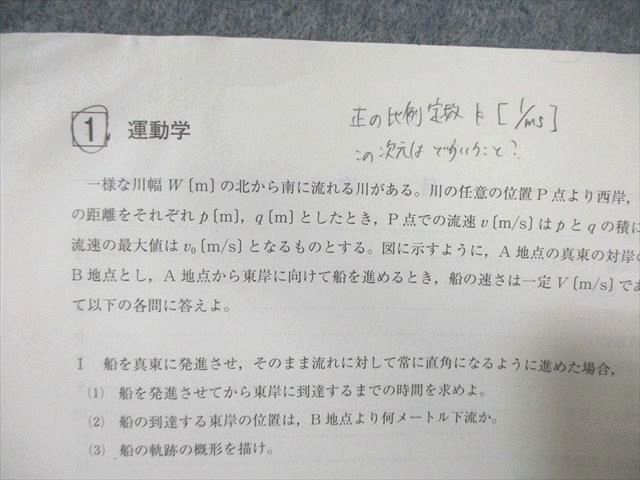 正の比例定数 k [1/ms]
この次元は どういうこと?
1 運動学
一様な川幅 W〔m〕の北から南に流れる川がある。川の任意の位置P点より西岸,
の距離をそれぞれ p〔m〕, q〔m〕としたとき, P点での流速 v〔m/s〕は p と q の積に
流速の最大値は v₀〔m/s〕となるものとする。図に示すように, A地点の真東の対岸の
B地点とし, A地点から東岸に向けて船を進めるとき, 船の速さは一定 V〔m/s〕であ
て以下の各問に答えよ。
I 船を真東に発進させ, そのまま流れに対して常に直角になるように進めた場合,
(1) 船を発進させてから東岸に到達するまでの時間を求めよ。
(2) 船の到達する東岸の位置は, B地点より何メートル下流か。
(3) 船の軌跡の概形を描け。